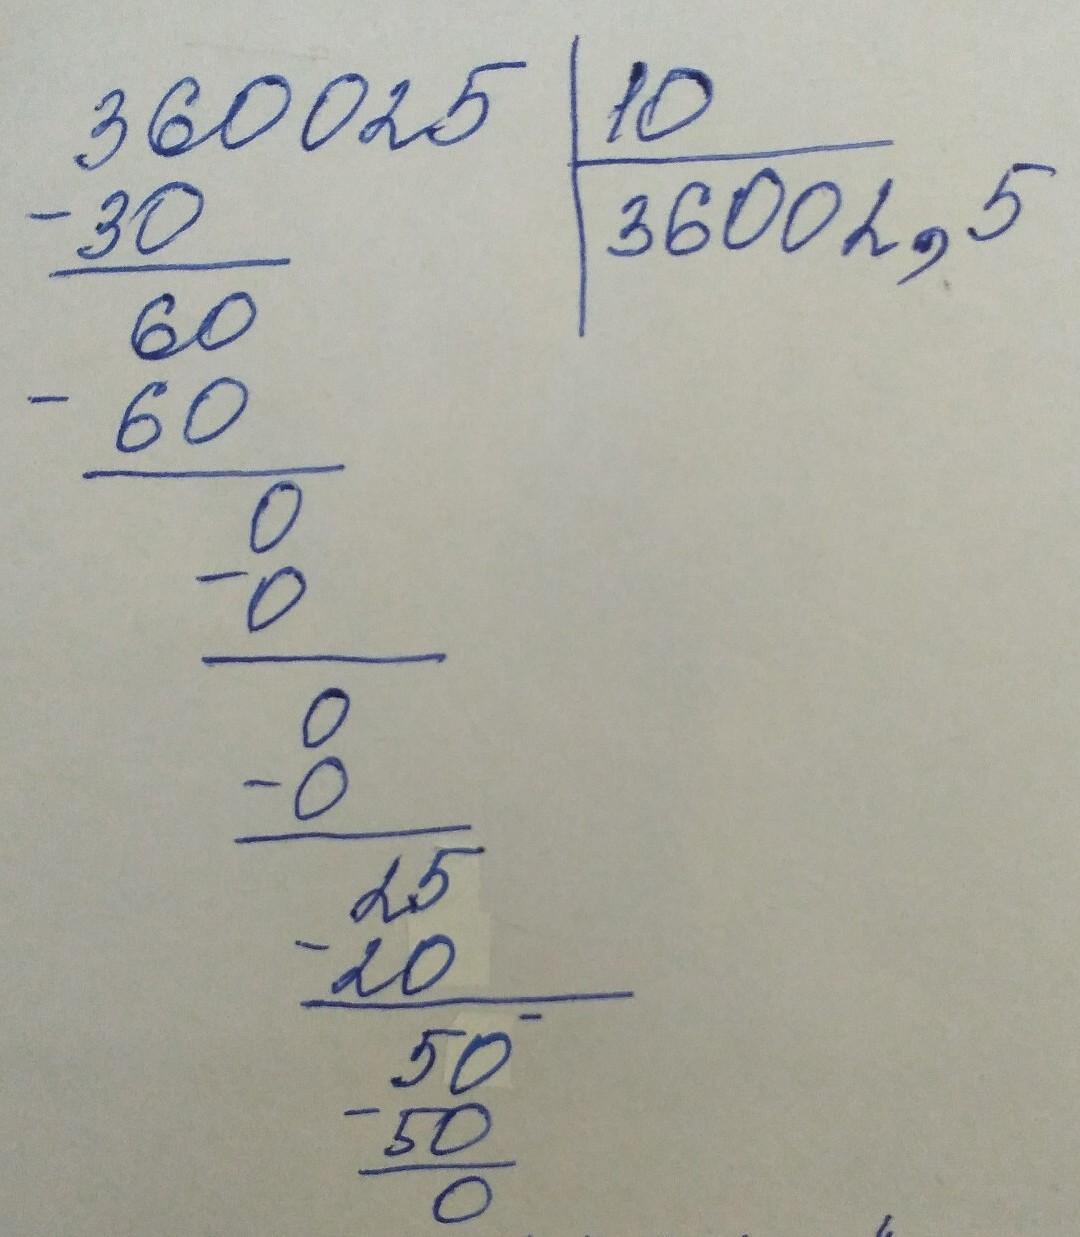 360025 | 10
- 30
36002,5
60
- 60
0
- 0
0
- 0
25
- 20
50
- 50
0